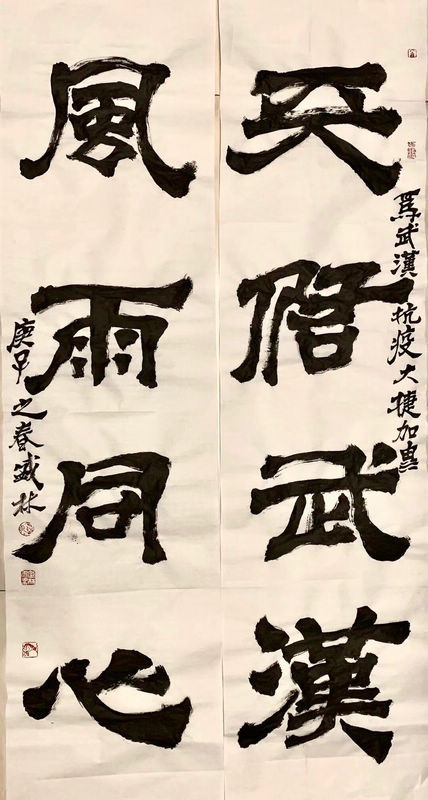 為武漢抗疫大捷加
天佑武漢
風雨同心
庚子之春盛林